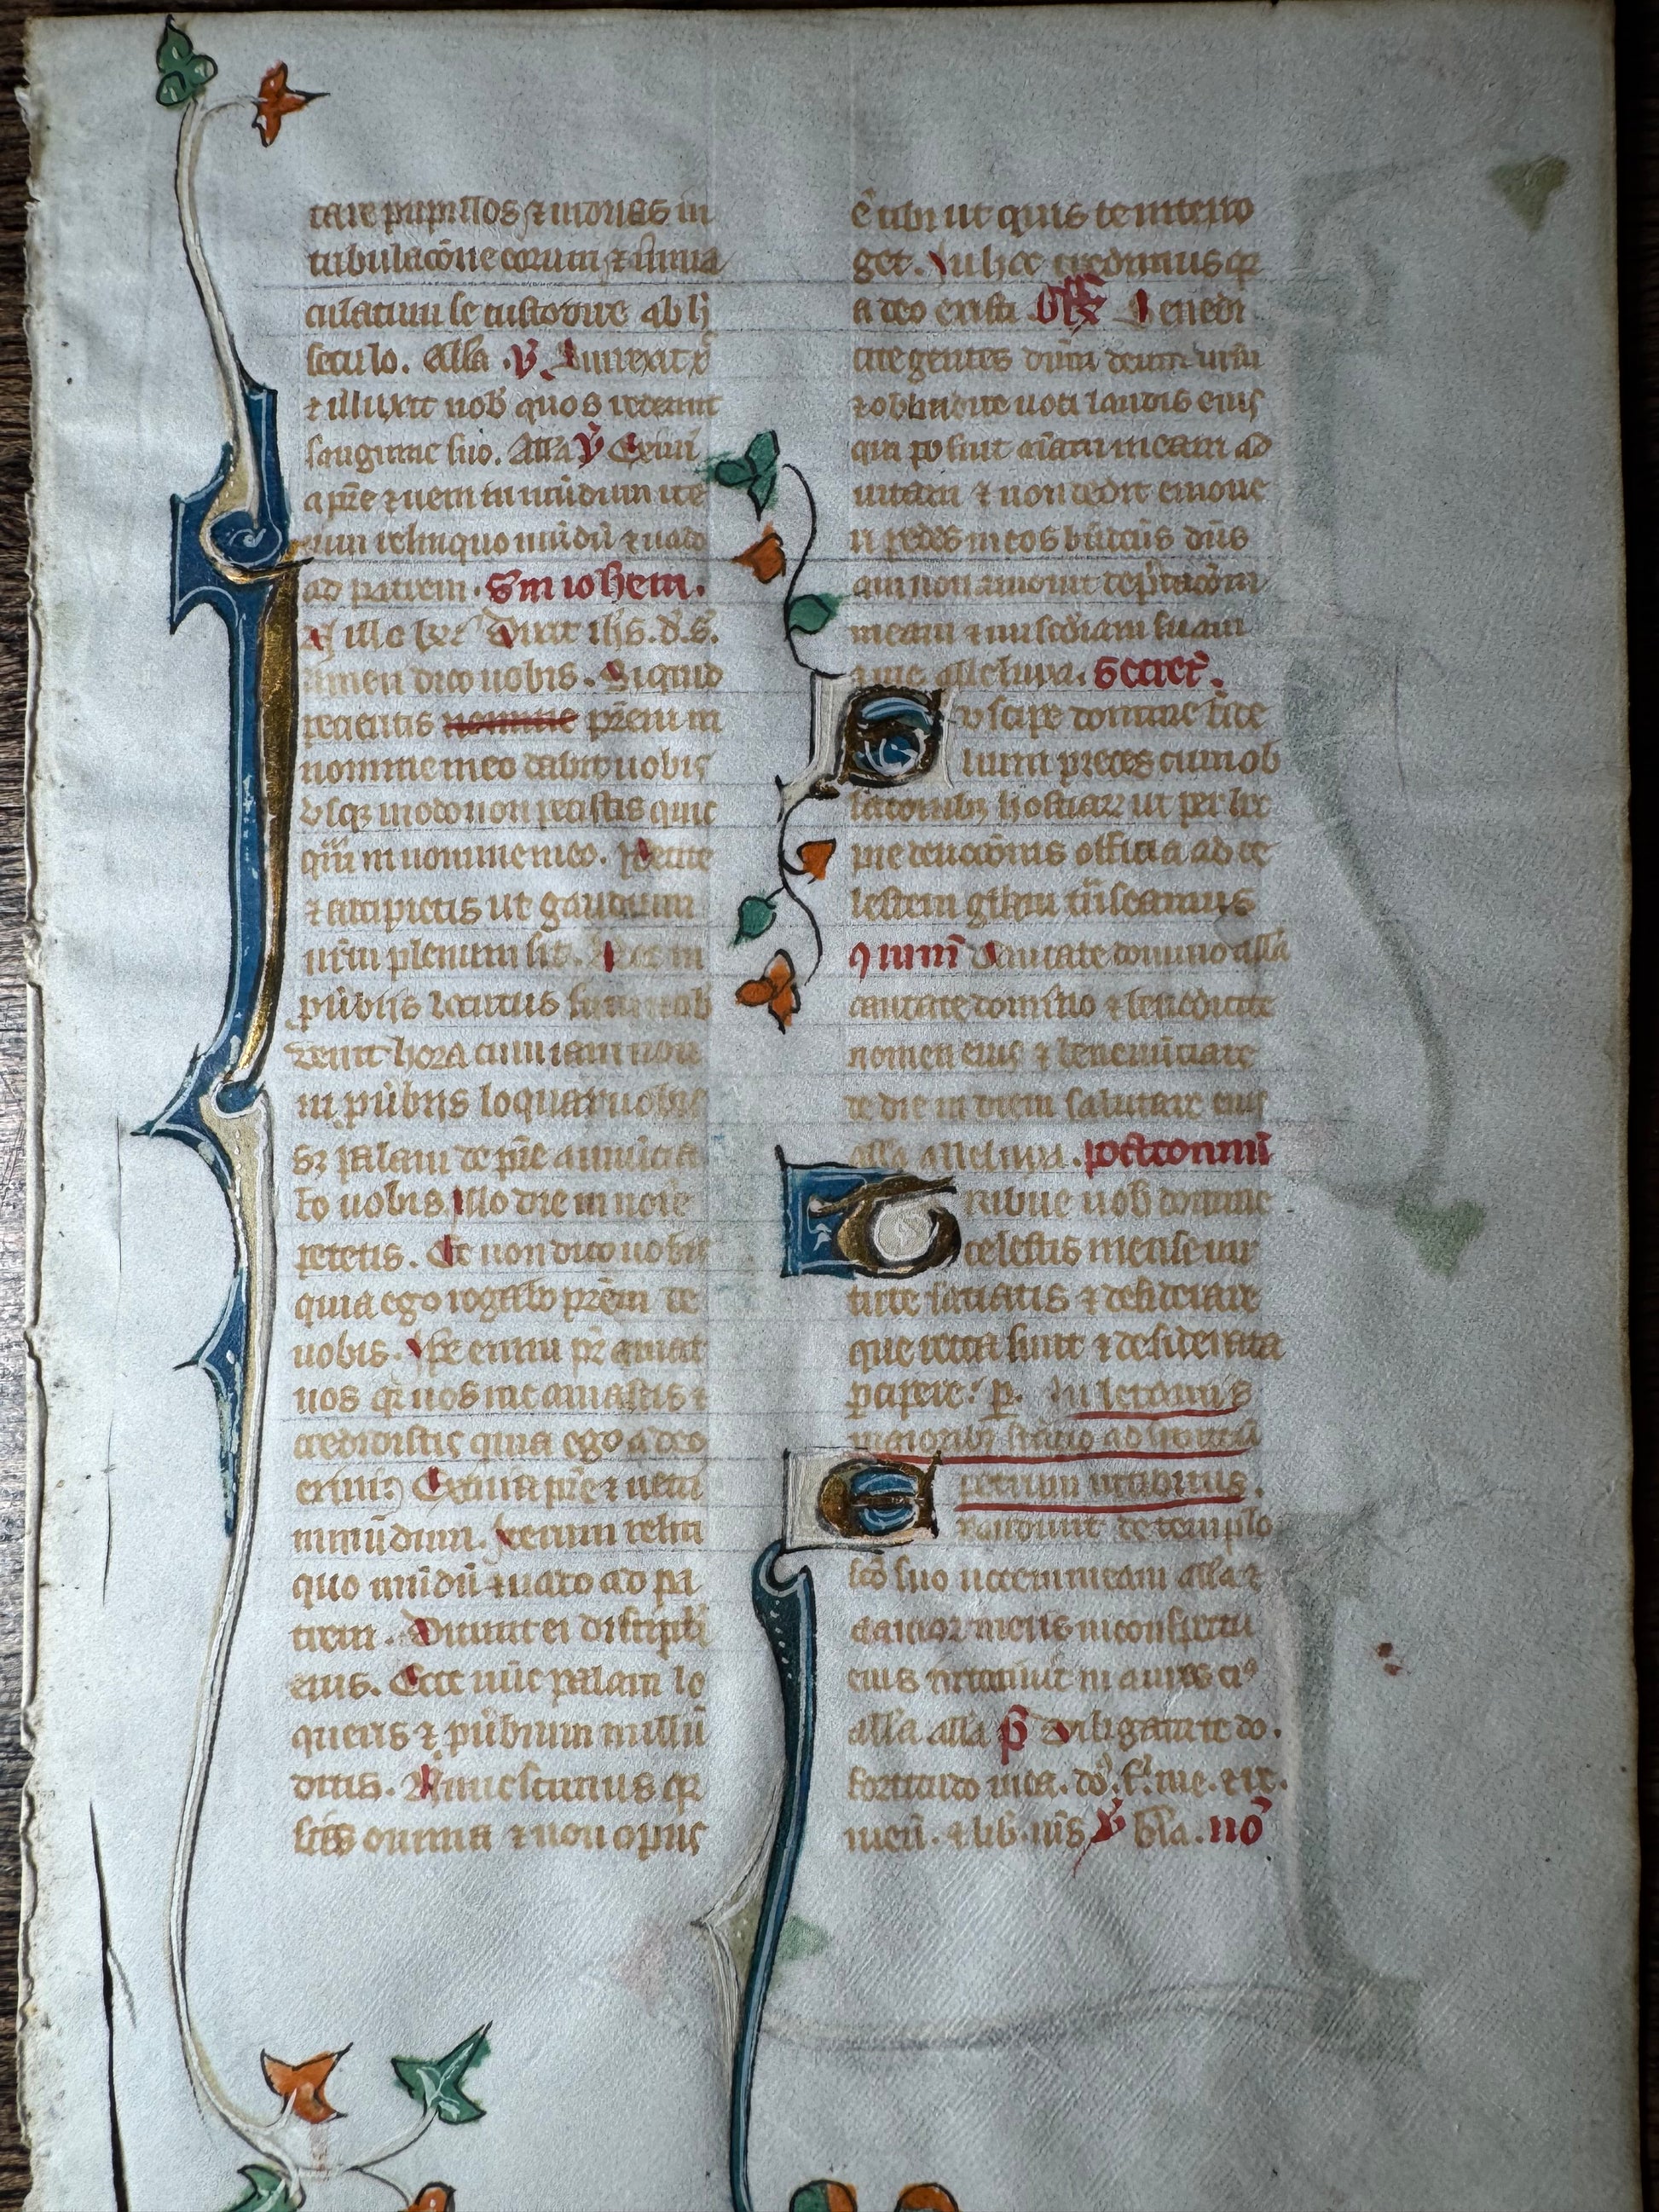 tare pupillos ⁊ uiduas in
tribulacōne eorum ⁊ inma
culatum se custodire ab h
seculo. All'a . V̄ Surrexit xp̄
⁊ illuxit nob' quos redemit
sanguine suo. All'a V̄ Exiui
a pr̄e ⁊ ueni in mūdum ite
rum relinquo mūdū ⁊ uado
ad patrem. Sm̄ ioh̄em.
In illo Dixit ih̄s. d. s.
Amen dico uobis. Si quid
petieritis nomine pr̄em in
nomine meo dabit uobis
Usq; modo non petistis quic
q̄m in nomine meo. Petite
⁊ accipietis ut gaudium
ur̄m plenum sit. Hec in
pūbiis locutus sum uob
Venit hora cum iam non
in pūbiis loquar uobis
sꝫ palam de pr̄e annūcia
bo uobis illo die in noīe
petetis. Et non dico uobis
quia ego rogabo pr̄em de
uobis. Ipse enim pr̄ amat
uos qr̄ uos me amastis ⁊
credidistis quia ego a deo
exiui. Exiui a pr̄e ⁊ ueni
in mūdum. Iterum relin
quo mūdū ⁊ uado ad pa
trem. Dicunt ei discipli
eius. Ecce nūc palam lo
queris ⁊ pūbium nullū
dicis. Nunc scimus qr̄
scis omnia ⁊ non opus
ē tibi ut quis te interro
get. In hoc credimus qr̄
a deo existi. Off̄ Benedi
cite gentes dn̄m deum nr̄m
⁊ obaudite uoci laudis eius
qui posuit aīam meam ad
uitam ⁊ non dedit cōmoue
ri pedes meos bn̄dictus dn̄s
qui non amouit dep̄cacōm
meam ⁊ mis̄cdiam suam
a me alleluya. Secret̄.
Suscipe domine fide
lium preces cum ob
lacionibꝫ hostiarꝫ ut per hec
pie deuocōnis officia ad ce
lestem gl'iam tn̄seamus
ꝯmūī Cantate domino all'a
cantate domino ⁊ benedicite
nomen eius ⁊ bene nūciate
de die in diem salutare eius
all'a alleluya. postcommū
Tribue nob' domine
celestis mense uir
tute satiatis ⁊ desiderare
que recta sunt ⁊ desiderata
ꝑcipere. ꝑ. In letaniis
maioribꝫ stacio ad sanctū
petrum introitus.
Exaudiuit de templo
sc̄o suo uocem meam all'a ⁊
clamor meus in conspectu
eius introiuit in aures ei⁹
all'a all'a p̄ Diligam te do.
fortitudo mea. do. f. me. ⁊ re.
meū. ⁊ lib. m̄s V̄ gl'a. nō